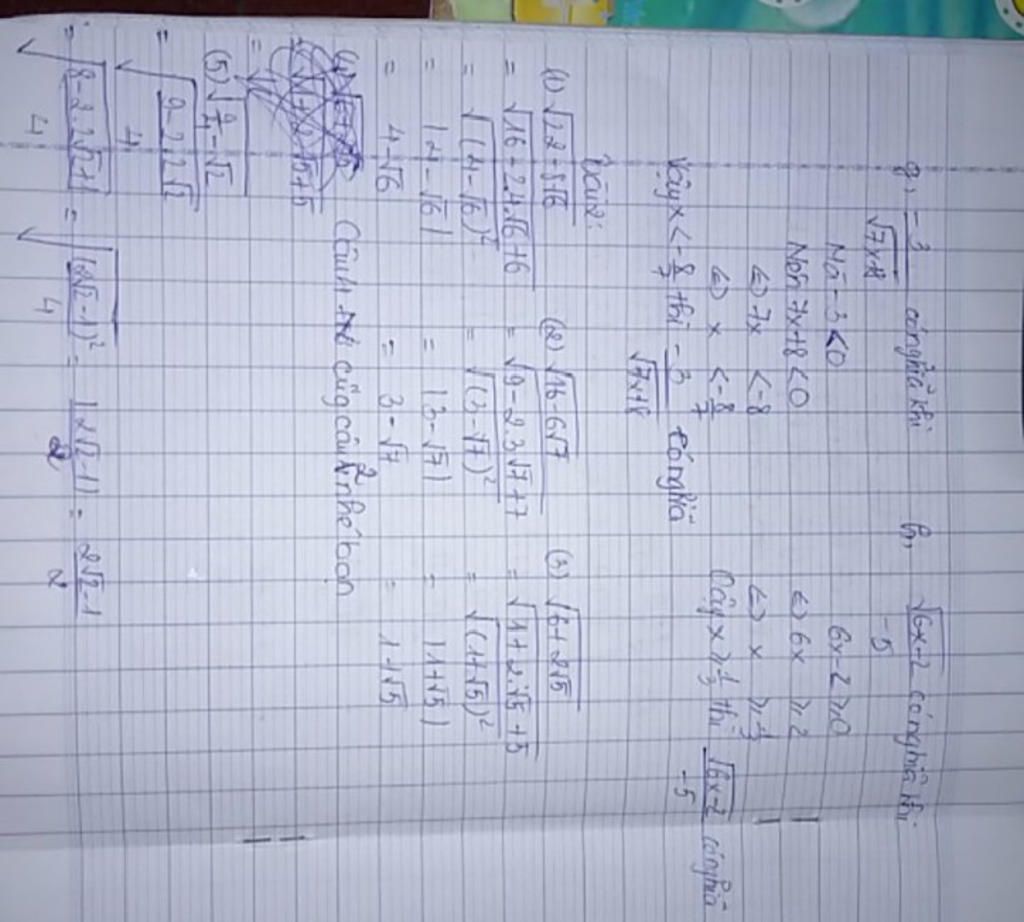 g, -3/√7x+8 có nghĩa khi
Mà -3<0
Nên 7x+8<0
⇔ 7x < -8
⇔ x < -8/7
Vậy x < -8/7 thì -3/√7x+8 có nghĩa
h, √6x-2/-5 có nghĩa khi
6x-2⩾0
⇔ 6x ⩾ 2
⇔ x ⩾ 1/3
Vậy x ⩾ 1/3 thì √6x-2/-5 có nghĩa
Bài 2:
(1) √22-8√6
= √16-2.4.√6+6
= √(4-√6)²
= |4-√6|
= 4-√6
(2) √16-6√7
= √9-2.3√7+7
= √(3-√7)²
= |3-√7|
= 3-√7
(3) √6+2√5
= √1+2.√5+5
= √(1+√5)²
= |1+√5|
= 1+√5
(4)
Câu 4 cũg câu 2 nhé bạn
(5) √9/4-√2
= √9-2.2√2/4
= √8-2.2√2+1/4 = √(2√2-1)²/4 = |2√2-1|/2 = 2√2-1/2